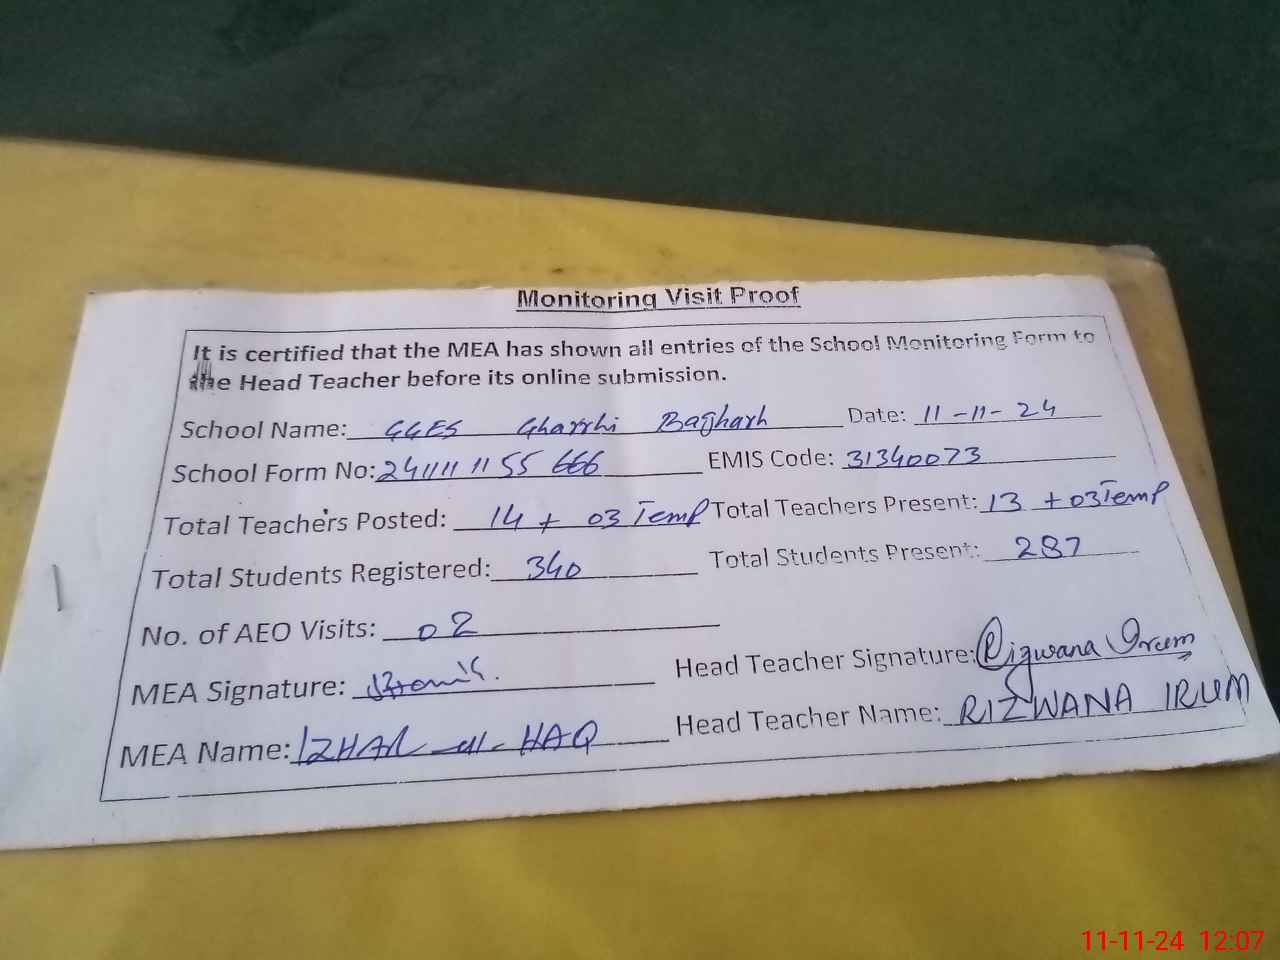 Monitoring Visit Proof
It is certified that the MEA has shown all entries of the School Monitoring Form to
the Head Teacher before its online submission.
School Name: GGES Gharrhi Bagharh Date: 11-11-24
School Form No: 241111 1155 666 EMIS Code: 31340073
Total Teachers Posted: 14 + 03 Temp Total Teachers Present: 13 + 03 Temp
Total Students Registered: 340 Total Students Present: 287
No. of AEO Visits: 02
MEA Signature: Head Teacher Signature: Rizwana Irum
MEA Name: IZHAR-ul-HAQ Head Teacher Name: RIZWANA IRUM
11-11-24 12:07